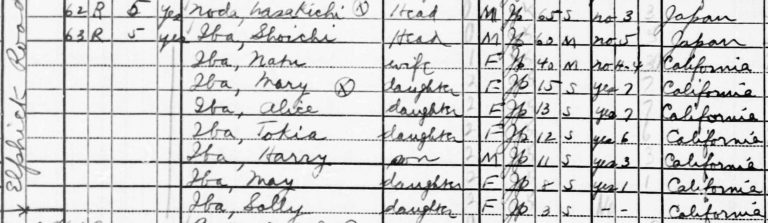 62 R 5 yes Noda, Masakichi Ⓧ Head M Jp 65 S no 3 Japan
63 R 5 yes Iba, Shoichi Head M Jp 62 M no 5 Japan
Iba, Natu wife F Jp 42 M no H-4 California
Iba, Mary Ⓧ daughter F Jp 15 S yes 7 California
Iba, Alice daughter F Jp 13 S yes 7 California
Iba, Tokia daughter F Jp 12 S yes 6 California
Iba, Harry son M Jp 11 S yes 3 California
Iba, May daughter F Jp 8 S yes 1 California
Iba, Sally daughter F Jp 3 S - - California
Elphick Road